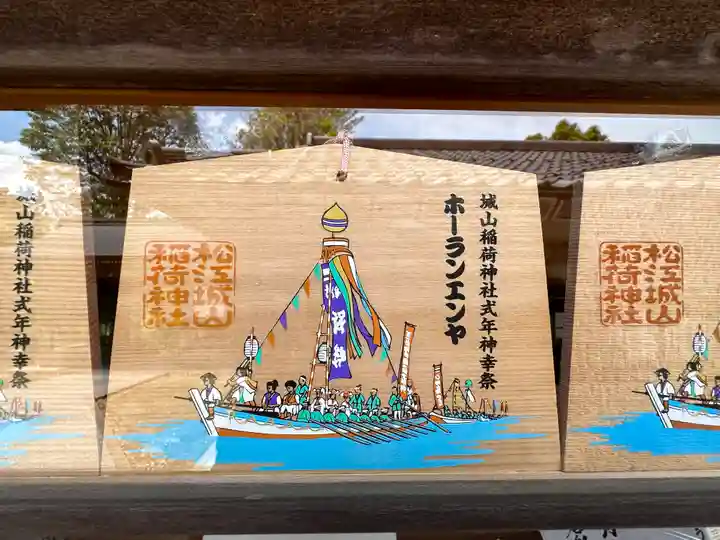 城山稲荷神社式年神幸祭
ホーランエンヤ
松江城山
稲荷神社
城山稲荷神社式年神幸祭
松江城山
稲荷神社